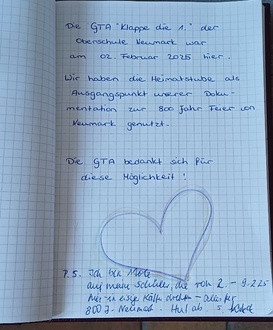 Die GTA "Klappe die 1." der
Oberschule Neumark war
am 02. Februar 2025 hier.
Wir haben die Heimatstube als
Ausgangspunkt unserer Doku-
mentation zur 800 Jahr Feier von
Neumark genutzt.
Die GTA bedankt sich für
diese Möglichkeit!
P.S. Ich bin
auf meine Schüler, die vom 2. -
in Kälte
800 J. Neumark.